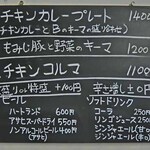 チキンカレープレート 1400
(チキンカレーとBのキーマの盛り合わせ)
もみじ豚と野菜のキーマ 1200
チキンコルマ 1100
盛りの特盛 +100円
辛さ増し±0円
ビール
ハートランド 600円
アサヒスーパードライ 550円
ノンアルコールビール 400円
(アサヒ)
ソフトドリンク
コーラ
ジンジャエール(甘口)
ジンジャエール(辛口)